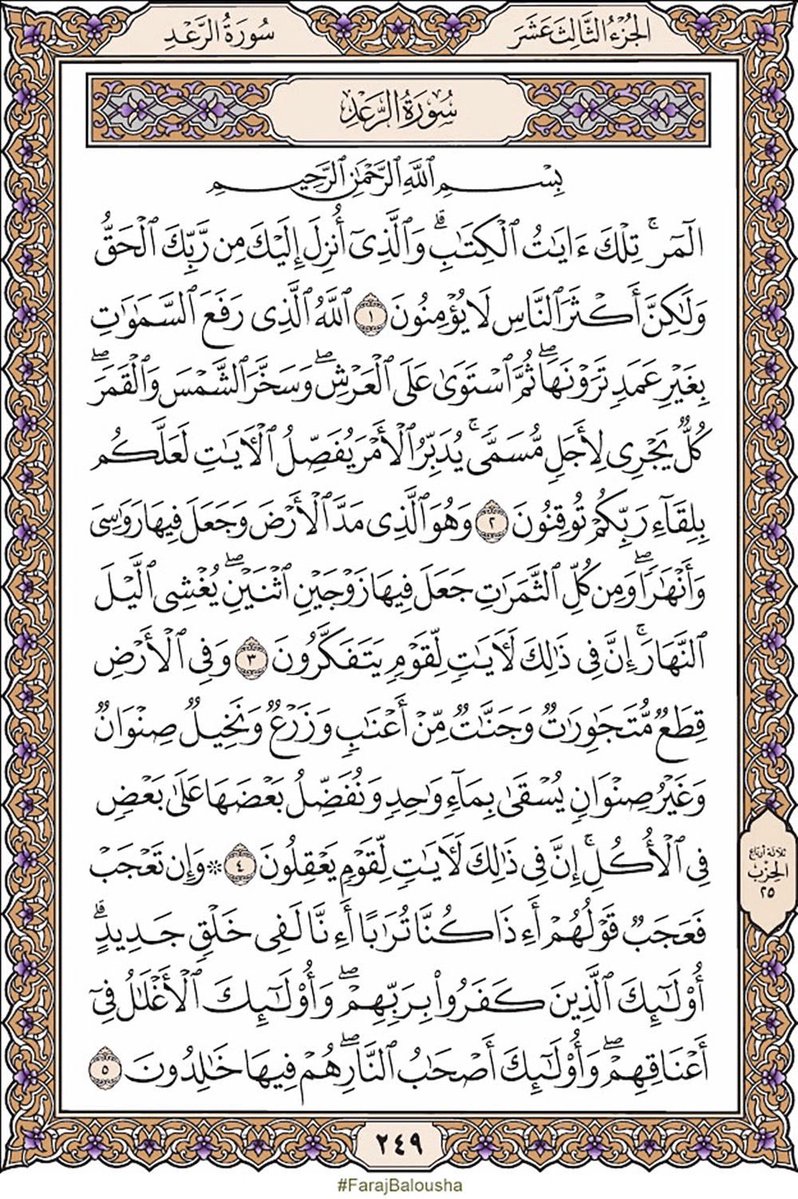 الجزء الثالث عشر
سورة الرعد
سُورَةُ الرَّعْدِ
بِسْمِ ٱللَّهِ ٱلرَّحْمَٰنِ ٱلرَّحِيمِ
الٓمٓرۚ تِلْكَ ءَايَٰتُ ٱلْكِتَٰبِۗ وَٱلَّذِىٓ أُنزِلَ إِلَيْكَ مِن رَّبِّكَ ٱلْحَقُّ
وَلَٰكِنَّ أَكْثَرَ ٱلنَّاسِ لَا يُؤْمِنُونَ ١ ٱللَّهُ ٱلَّذِى رَفَعَ ٱلسَّمَٰوَٰتِ
بِغَيْرِ عَمَدٍ تَرَوْنَهَاۖ ثُمَّ ٱسْتَوَىٰ عَلَى ٱلْعَرْشِۖ وَسَخَّرَ ٱلشَّمْسَ وَٱلْقَمَرَۖ
كُلٌّ يَجْرِى لِأَجَلٍ مُّسَمًّىۚ يُدَبِّرُ ٱلْأَمْرَ يُفَصِّلُ ٱلْءَايَٰتِ لَعَلَّكُم
بِلِقَآءِ رَبِّكُمْ تُوقِنُونَ ٢ وَهُوَ ٱلَّذِى مَدَّ ٱلْأَرْضَ وَجَعَلَ فِيهَا رَوَٰسِىَ
وَأَنْهَٰرًاۖ وَمِن كُلِّ ٱلثَّمَرَٰتِ جَعَلَ فِيهَا زَوْجَيْنِ ٱثْنَيْنِۖ يُغْشِى ٱلَّيْلَ
ٱلنَّهَارَۚ إِنَّ فِى ذَٰلِكَ لَءَايَٰتٍ لِّقَوْمٍ يَتَفَكَّرُونَ ٣ وَفِى ٱلْأَرْضِ
قِطَعٌ مُّتَجَٰوِرَٰتٌ وَجَنَّٰتٌ مِّنْ أَعْنَٰبٍ وَزَرْعٌ وَنَخِيلٌ صِنْوَانٌ
وَغَيْرُ صِنْوَانٍ يُسْقَىٰ بِمَآءٍ وَٰحِدٍ وَنُفَضِّلُ بَعْضَهَا عَلَىٰ بَعْضٍ
فِى ٱلْأُكُلِۚ إِنَّ فِى ذَٰلِكَ لَءَايَٰتٍ لِّقَوْمٍ يَعْقِلُونَ ٤ ۞ وَإِن تَعْجَبْ
فَعَجَبٌ قَوْلُهُمْ أَءِذَا كُنَّا تُرَٰبًا أَءِنَّا لَفِى خَلْقٍ جَدِيدٍۗ
أُو۟لَٰٓئِكَ ٱلَّذِينَ كَفَرُوا۟ بِرَبِّهِمْۖ وَأُو۟لَٰٓئِكَ ٱلْأَغْلَٰلُ فِىٓ
أَعْنَاقِهِمْۖ وَأُو۟لَٰٓئِكَ أَصْحَٰبُ ٱلنَّارِۖ هُمْ فِيهَا خَٰلِدُونَ ٥
ثلاثة أرباع
الحزب
٢٥
٢٤٩
#FarajBalousha